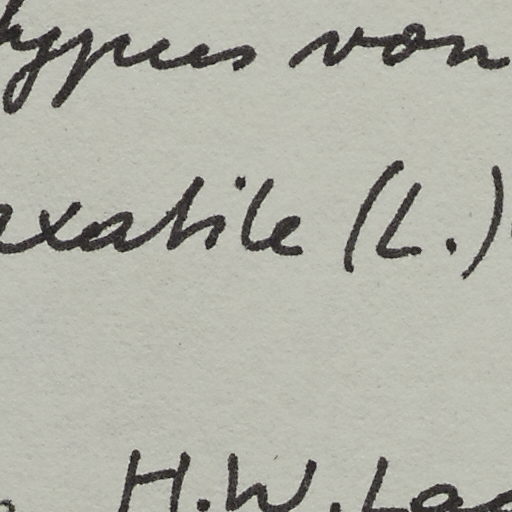 typus von
axatile (L.)
H.W. Lac